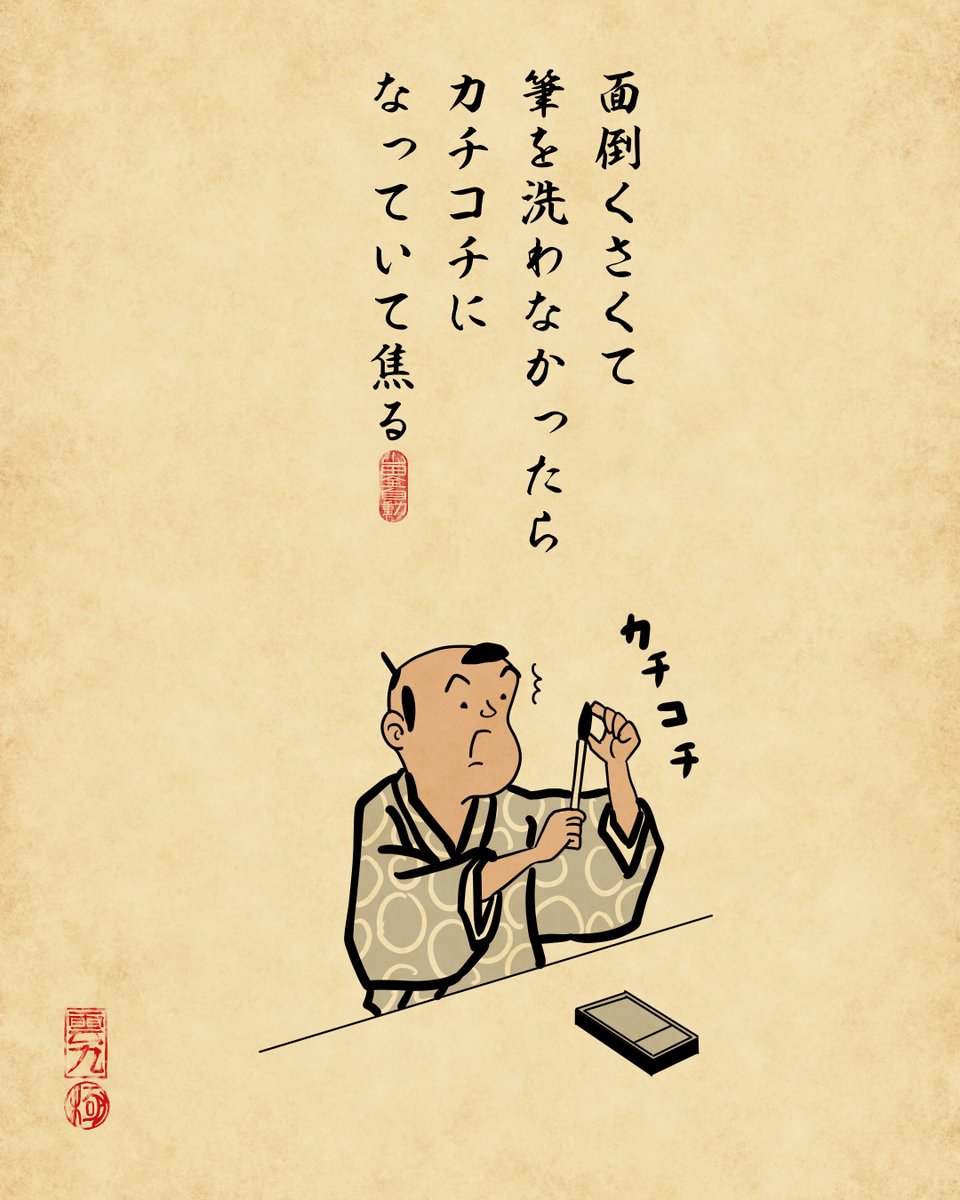 面倒くさくて
筆を洗わなかったら
カチコチに
なっていて焦る
カチコチ
雲九
極